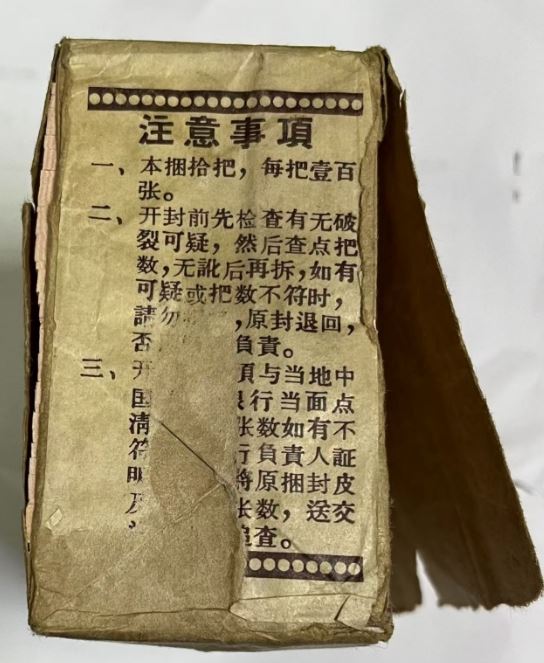 注意事項
一、本捆拾把，每把壹百
张。
二、开封前先检查有无破
裂可疑，然后查点把
数，无訛后再拆，如有
可疑或把数不符时，
請勿，原封退回，
否負責。
三、开項与当地中
国行当面点
清张数如有不
符行負責人証
明将原捆封皮
及张数，送交
追查。